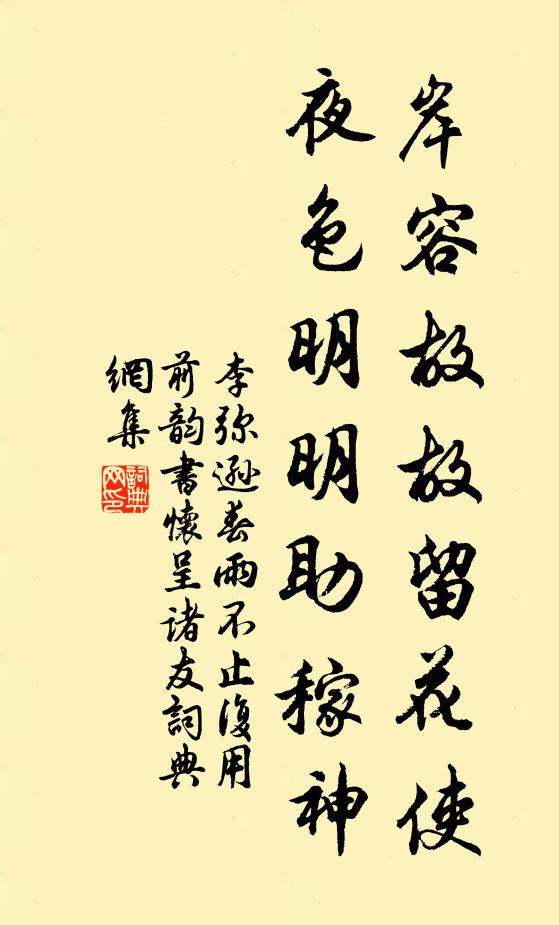 岸容故故留花使
夜色明明助稼神
李弥遜春雨不止復用
前韵書懷呈诸友詞典
網集
詞典
网印